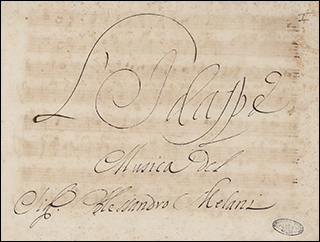 L'Idaspe
Musica del
Sigr. Alessandro Melani